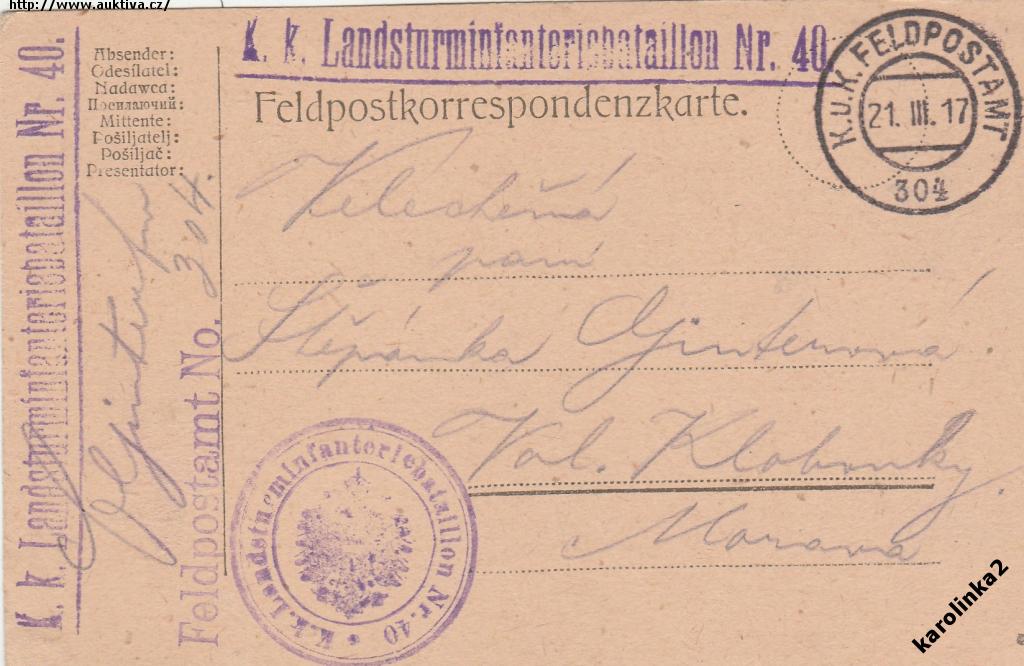 http://www.auktiva.cz/
K. k. Landsturminfanteriebataillon Nr. 40.
K. k. Landsturminfanteriebataillon Nr. 40
K.U.K. FELDPOSTAMT
21. III. 17
304
Absender:
Odesílatel:
Nadawca:
Посилаючий:
Mittente:
Pošiljatelj:
Pošiljač:
Presentator:
Feldpostkorrespondenzkarte.
Feldpostamt No. 304.
paní
Štěpánka Ginterová
Val. Klobouky.
Morava
K.k. Landsturminfanteriebataillon Nr. 40
karolinka2